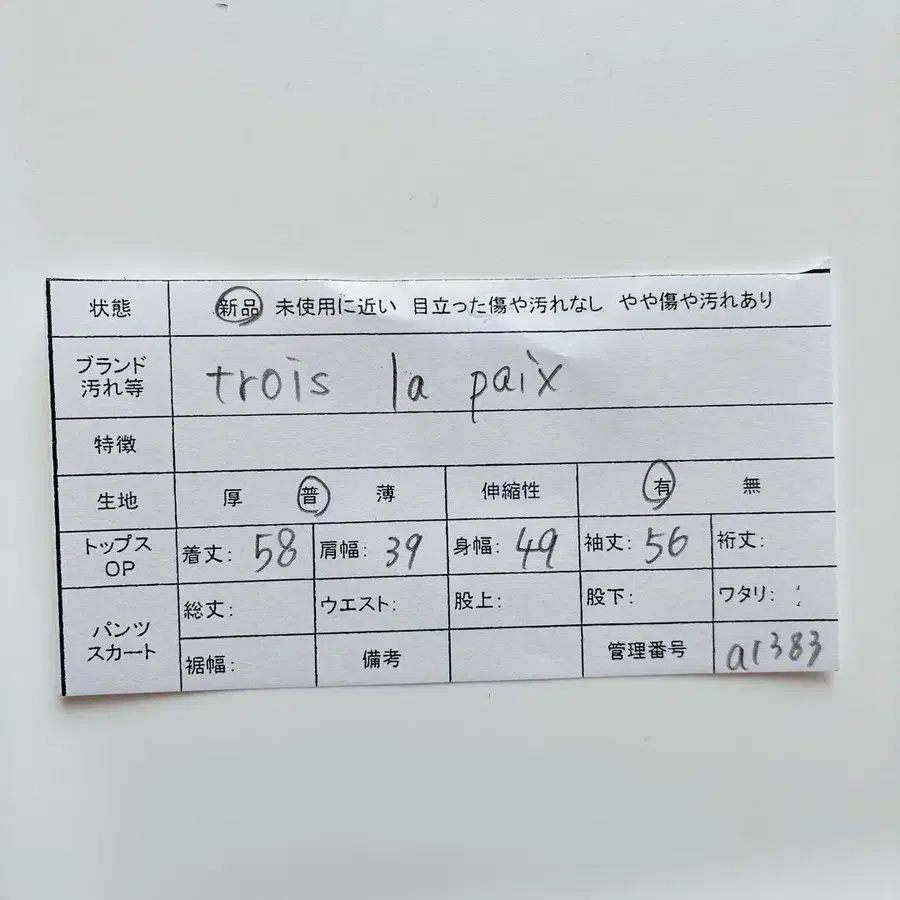 状態 新品 未使用に近い 目立った傷や汚れなし やや傷や汚れあり
ブランド
汚れ等
trois la paix
特徴
生地 厚 普 薄 伸縮性 有 無
トップス
OP
着丈: 58 肩幅: 39 身幅: 49 袖丈: 56 裄丈:
パンツ
スカート
総丈: ウエスト: 股上: 股下: ワタリ:
裾幅: 備考 管理番号 a1383